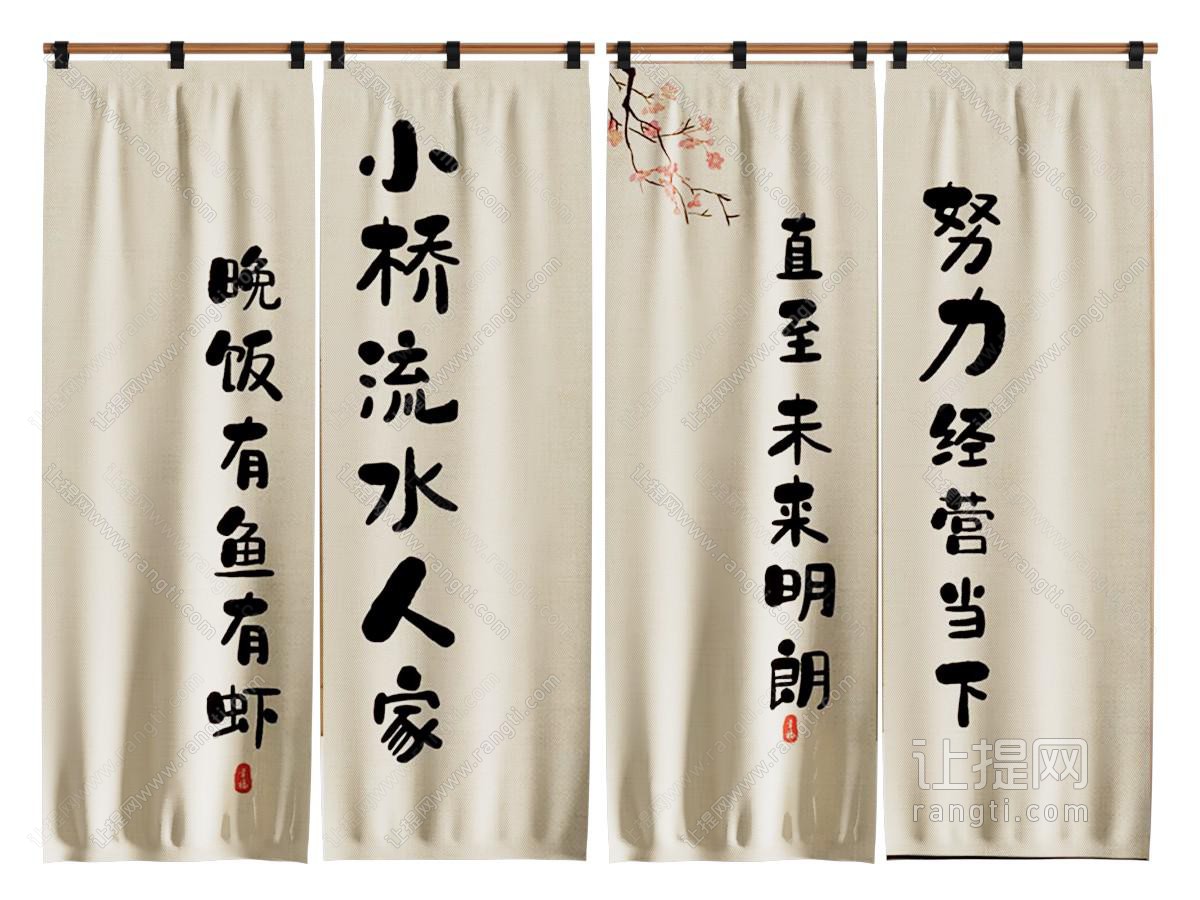 小桥流水人家
晚饭有鱼有虾
努力经营当下
直至未来明朗
让提网
rangti.com